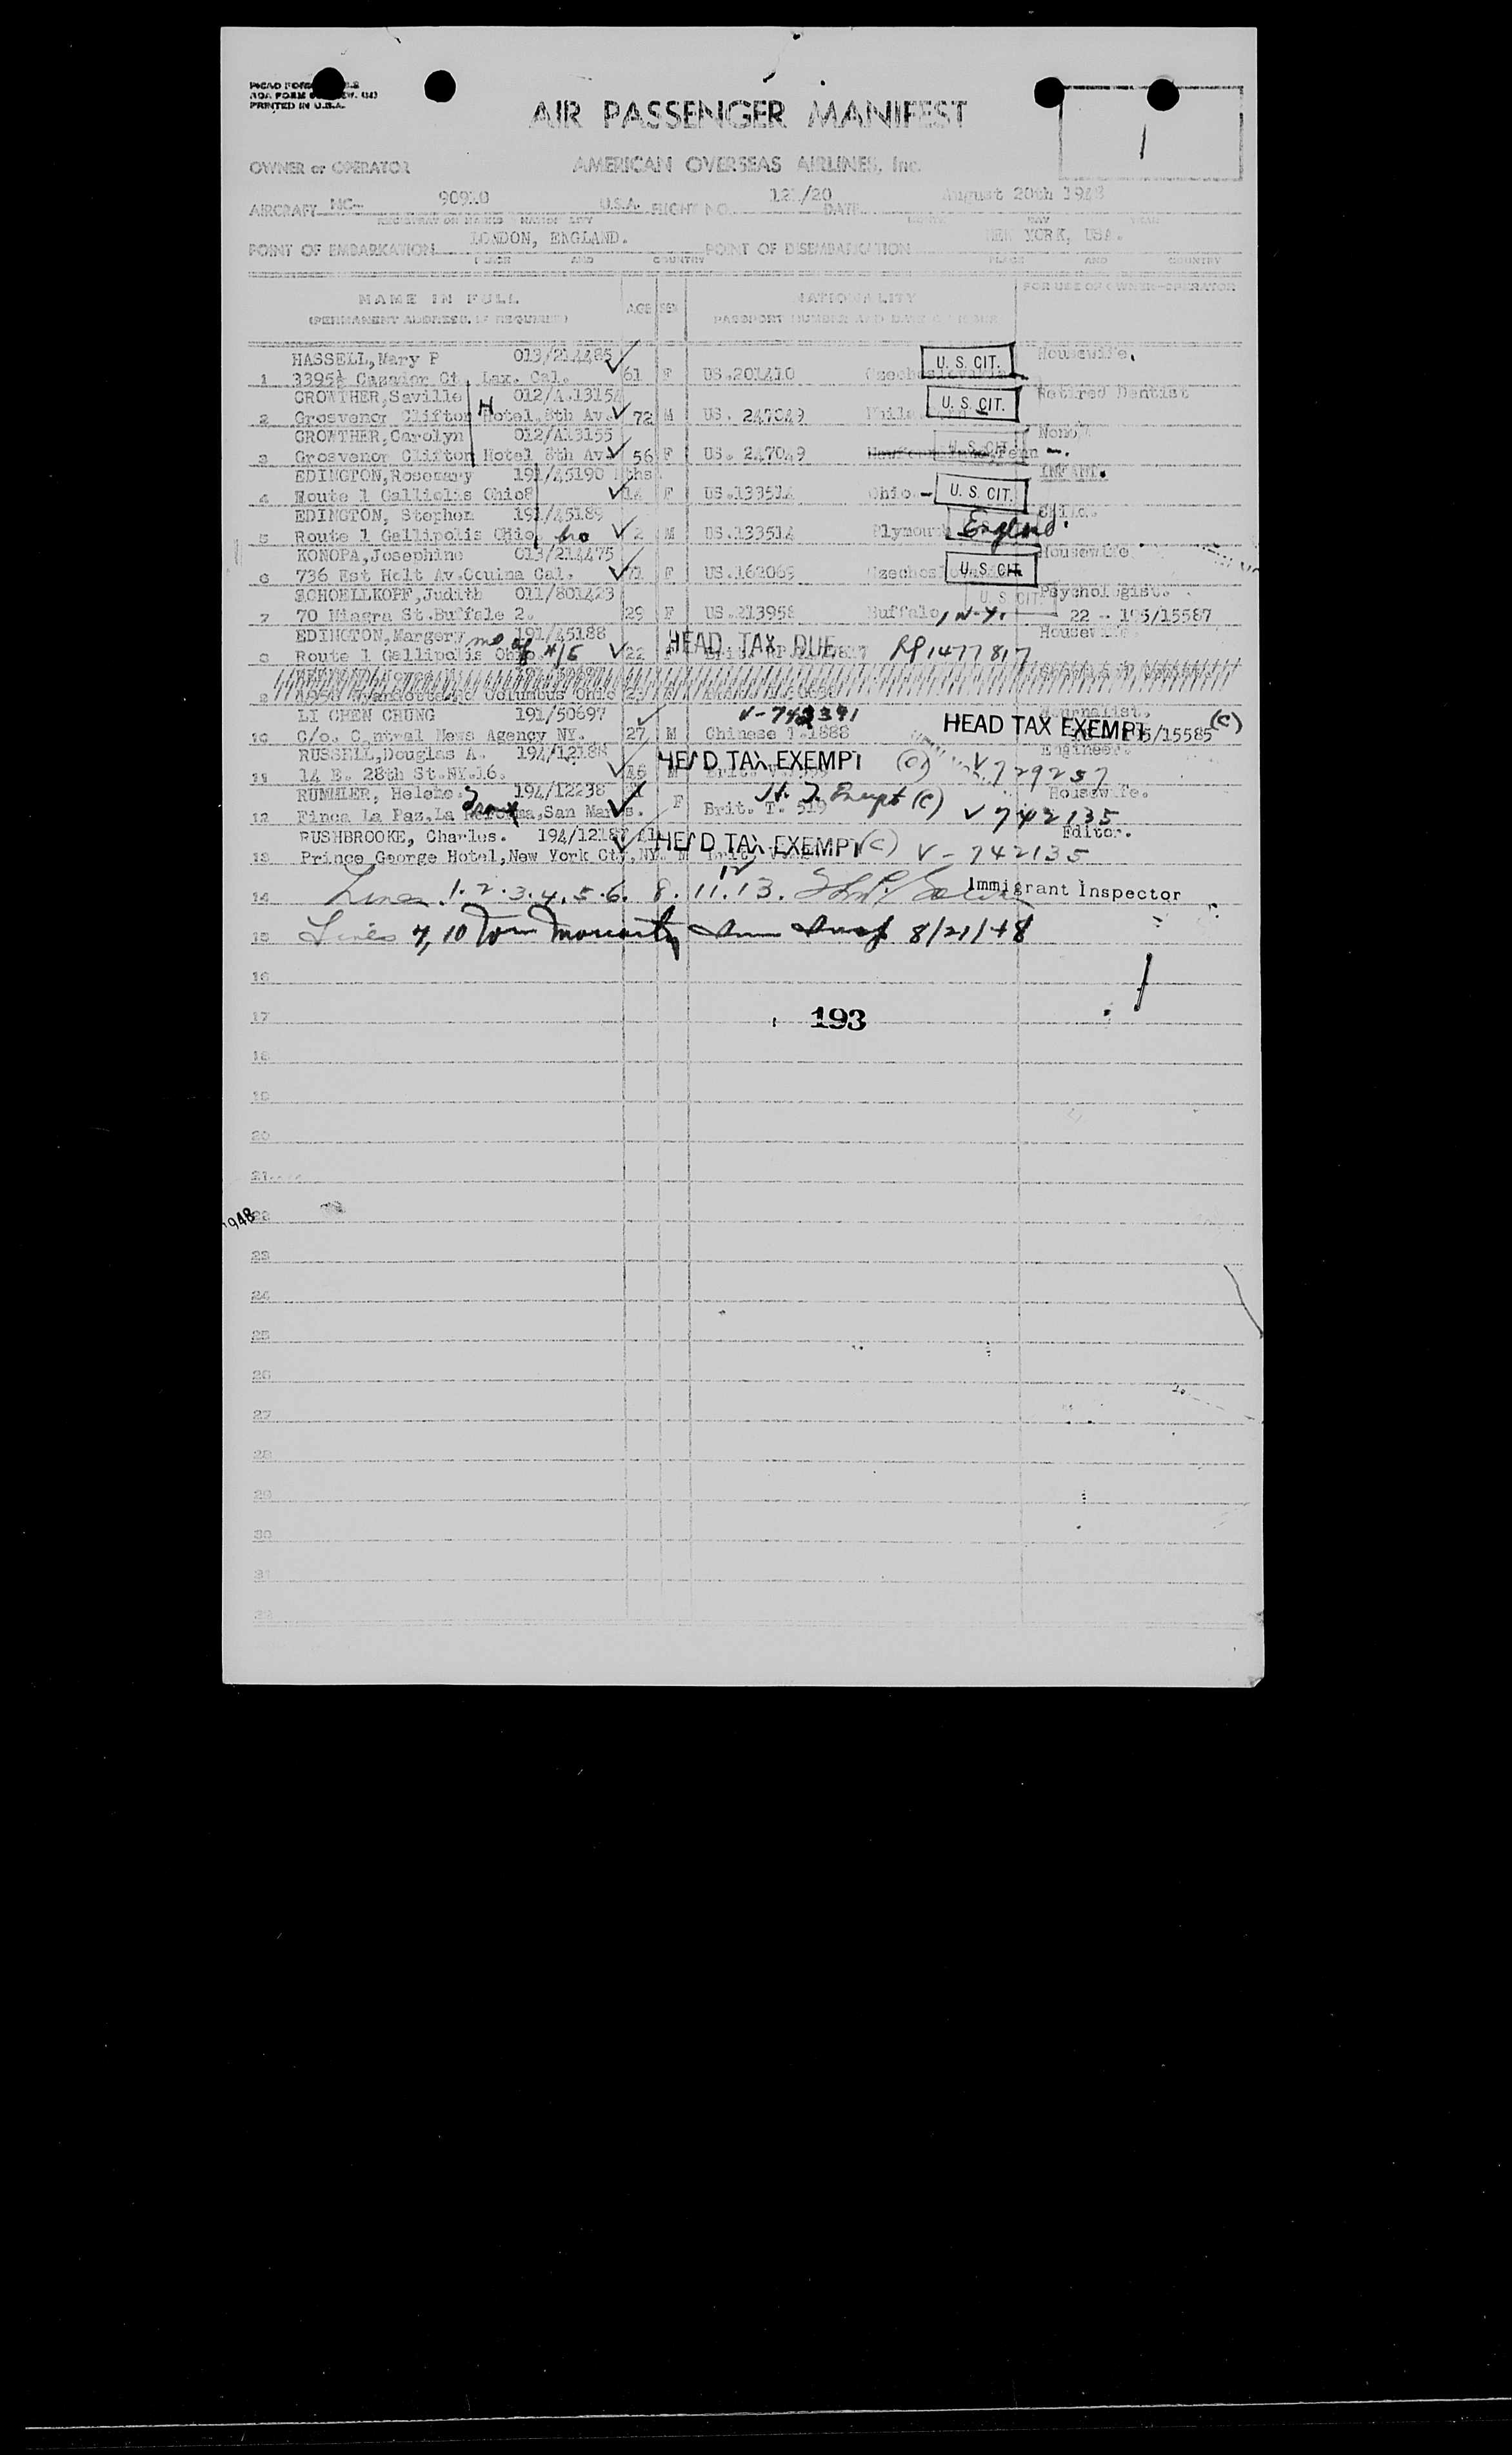 PRINTED IN U.S.A.
AIR PASSENGER MANIFEST
1
OWNER or OPERATOR AMERICAN OVERSEAS AIRLINES, Inc.
AIRCRAFT NC- 90910 U.S.A. FLIGHT NO. 121/20 DATE August 20th 1948
POINT OF EMBARKATION LONDON, ENGLAND. POINT OF DISEMBARKATION NEW YORK, USA.
PLACE AND COUNTRY PLACE AND COUNTRY
NAME IN FULL AGE SEX NATIONALITY FOR USE OF OWNER-OPERATOR
(PERMANENT ADDRESS, IF REQUIRED) PASSPORT NUMBER AND
HASSELL, Mary P 013/214485 U. S. CIT. Housewife.
1 3395½ Cazador Ct. Lax. Cal. 61 F US.201410
CROWTHER, Saville 012/A.13154 U. S. CIT. Retired Dentist
2 Grosvenor Clifton Hotel. 8th Av. 72 M US. 247049
CROWTHER, Carolyn 012/A13155 U. S. CIT. None
3 Grosvenor Clifton Hotel 8th Av. 56 F US. 247049
EDINGTON, Rosemary 191/45190 INFANT.
4 Route 1 Galliolis Ohio 14 F US.133514 Ohio - U. S. CIT.
EDINGTON, Stephen 191/45189 Child.
5 Route 1 Gallipolis Ohio bro 2 M US.133514 Plymouth England.
KONOPA, Josephine 013/214475 Housewife
6 736 Est Holt Av. Cal. 71 F US.162069 Czechoslovakia U. S. CIT.
SCHOELLKOPF, Judith 011/801423 U. S. CIT. Psychologist.
7 70 Niagra St. Buffale 2. 29 F US.213958 Buffalo, N.Y. 22 - 195/15587
EDINGTON, Margery 191/45188 HEAD TAX DUE Housewife
8 Route 1 Gallipolis Ohio 22 RP 1477817
9 Columbus Ohio
LI CHEN CHUNG 191/50697 V-742391 Journalist.
10 C/o. Central News Agency NY. 27 M Chinese T.1888 HEAD TAX EXEMPT (C) /15585
RUSSELL, Douglas A. 194/12188 HEAD TAX EXEMPT (C) Engineer.
11 14 E. 28th St. NY.16. 46 M V 729257
RUMMLER, Helene. 194/12238 F H. T. Exempt (C) Housewife.
12 Finca La Paz, La Reforma, San Marcos. Brit. T. 519 V 742135
RUSHBROOKE, Charles. 194/12187 HEAD TAX EXEMPT (C) Editor.
13 Prince George Hotel, New York Cty, NY. M V - 742135
14 Lines. 1. 2. 3. 4. 5. 6. 8. 11. 12 13. Immigrant Inspector
15 Lines 7, 10 Tom Moriarty Imm Insp 8/21/48
16
17 193
18
19
20
21
1948
22
23
24
25
26
27
28
29
30
31
32